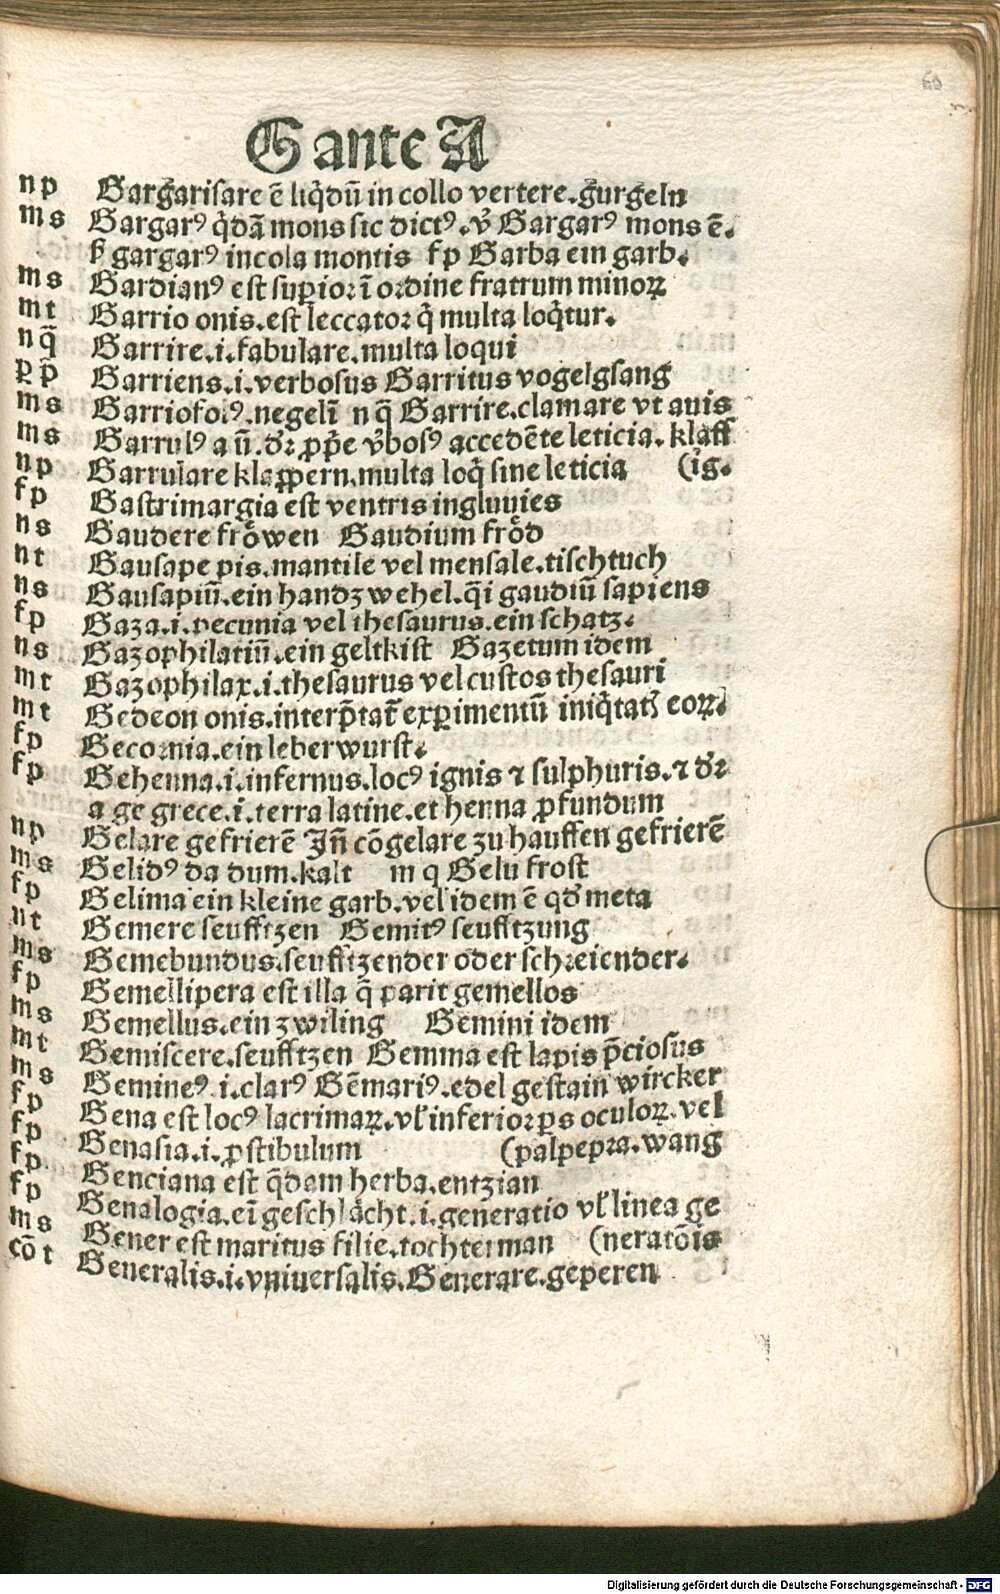 G ante A
np Gargarisare ē liq̄dū in collo vertere.gurgeln
ms Gargarꝰ q̄dā mons sic dictꝰ.ṽ Gargarꝰ mons ē.
ꝫ gargarꝰ incola montis fp Garba ein garb.
ms Gardianꝰ est superior ī ordine fratrum minoꝝ
mt Garrio onis.est leccator q̄ multa loq̄tur.
nq̄ Garrire.i.fabulare.multa loqui
p̱p̄ Garriens.i.verbosus Garritus vogelgsang
ms Garriofolꝰ.negelī nq̄ Garrire.clamare vt auis
ms Garrulꝰ a ū.dr̄ ꝓp̄e v̄bosꝰ accedēte leticia.klaff
np Garrulare klappern.multa loq̄ sine leticia (īg.
fp Gastrimargia est ventris ingluuies
ns Gaudere fröwen Gaudium fröd
nt Gausape pis.mantile vel mensale.tischtuch
ns Gausapiū.ein handzwehel.q̄i gaudiū sapiens
fp Gaza.i.pecunia vel thesaurus.ein schatz.
ns Gazophilatiū.ein geltkist Gazetum idem
mt Gazophilax.i.thesaurus vel custos thesauri
mt Gedeon onis.interp̄tat̄ experimentū iniq̄tatꝭ eoꝝ.
fp Gecornia.ein leberwurst.
fp Gehenna.i.infernus.locꝰ ignis ⁊ sulphuris.⁊ dr̄
a ge grece.i.terra latine.et henna ꝓfundum
np Gelare gefrierē Jn̄ cōgelare zu hauffen gefrierē
ms Gelidꝰ da dum.kalt m q Gelu frost
fp Gelima ein kleine garb.vel idem ē qd̄ meta
nt Gemere seufftzen Gemitꝰ seufftzung
ms Gemebundus.seufftzender oder schreiender.
fp Gemellipera est illa q̄ parit gemellos
ms Gemellus.ein zwiling Gemini idem
mt Gemiscere.seufftzen Gemma est lapis p̄ciosus
ms Gemineꝰ.i.clarꝰ Gēmariꝰ.edel gestain wircker
fp Gena est locꝰ lacrimaꝝ.vl̄ inferior ps oculoꝝ.vel
fp Genasia.i.ꝓstibulum (palpepra.wang
fp Genciana est q̄dam herba.entzian
fp Genalogia.eī geschlächt.i.generatio vl̄ linea ge
ms Gener est maritus filie.tochterman (neratōis
cōt Generalis.i.vniuersalis.Generare.geperen
Digitalisierung gefördert durch die Deutsche Forschungsgemeinschaft - DFG